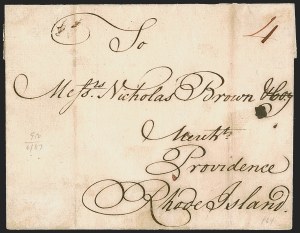 4
To
Messrs. Nicholas Brown & Coy
Merchts
Providence
Rhode Island.